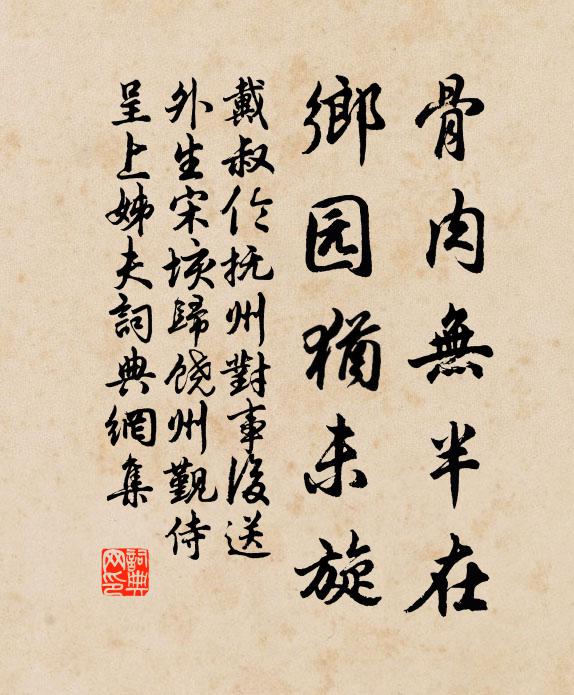 骨肉無半在
鄉园猶未旋
戴叔伦抚州對事後送
外生宋垓歸饶州觐侍
呈上姊夫詞典網集
詞典网印